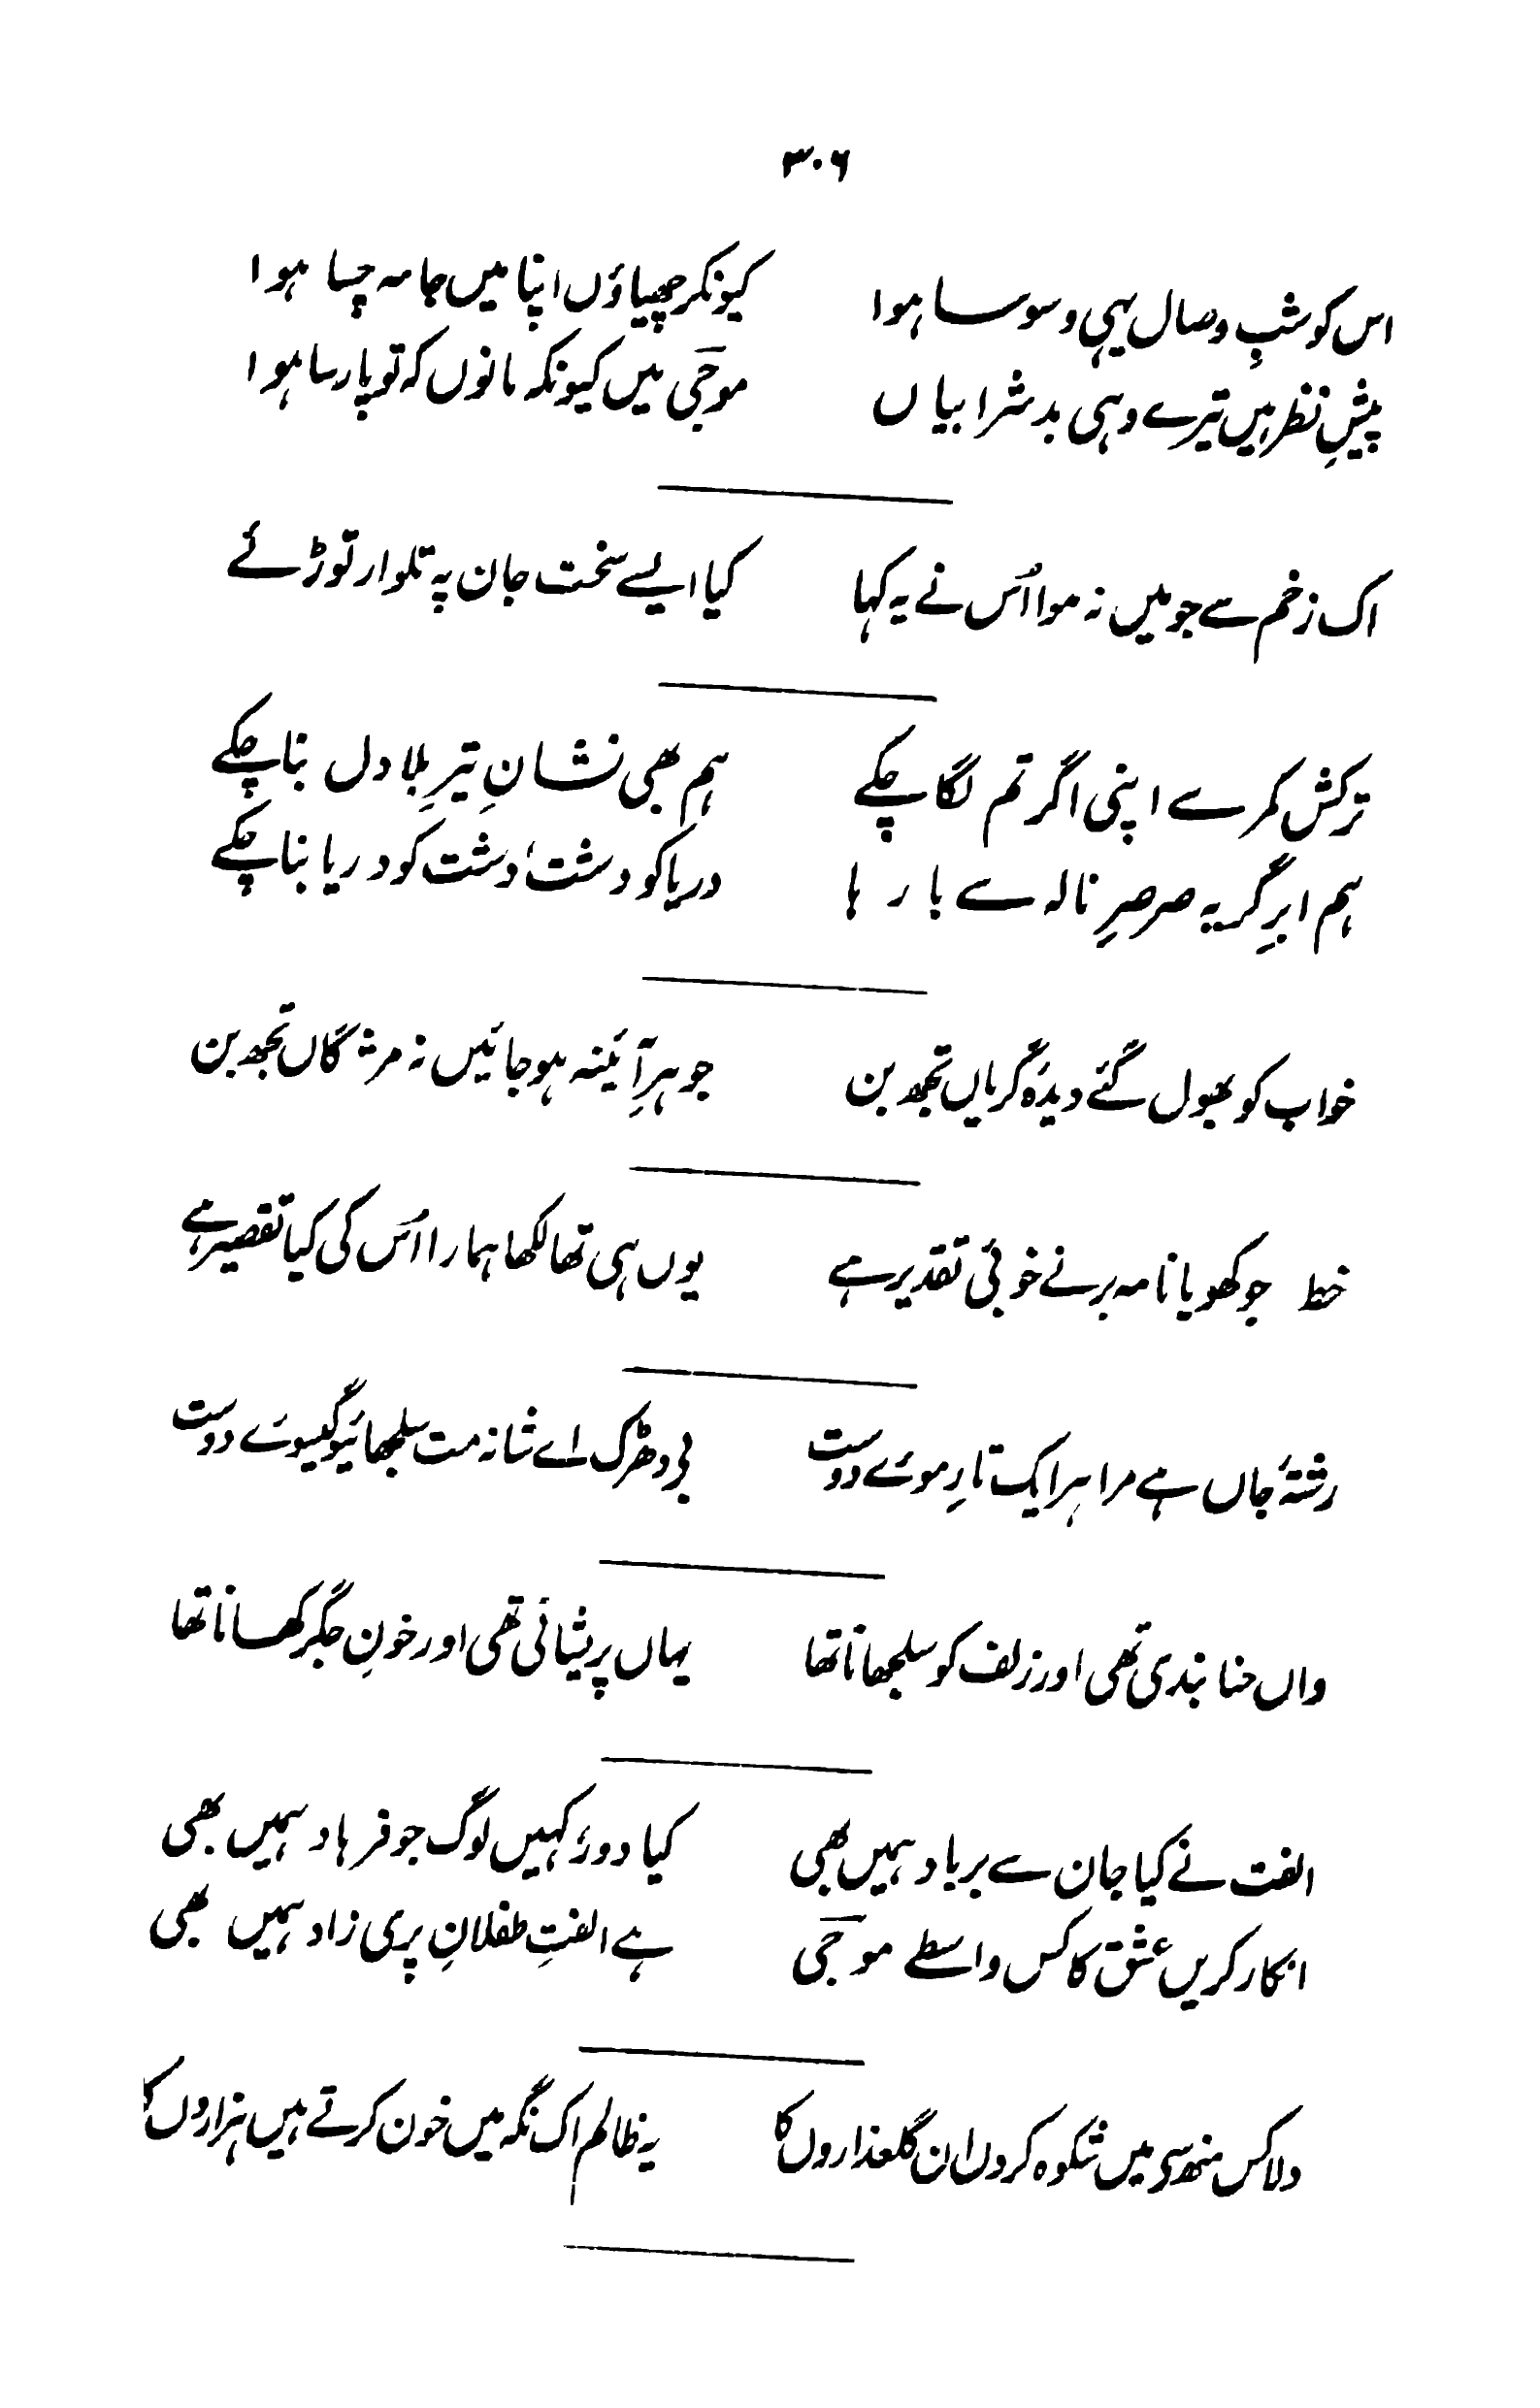 ۳۰۶
اس کو شبِ وصال یہی وسوسا ہوا
کیونکر چھپاؤں اپنا میں جامہ چسا ہوا
پیشِ نظر ہیں تیرے وہی بد شرابیاں
موجیؔ میں کیونکہ مانوں کہ تو پارسا ہوا
اک زخم سے جو میں نہ موا اُس نے یہ کہا
کیا ایسے سخت جان پہ تلوار توڑئے
ترکش کمر سے اپنی اگر تم لگا چکے
ہم بھی نشانِ تیرِ بلا دل بنا چکے
ہم ابرِ گریہ صرصرِ نالہ سے بارہا
دریا کو دشت، دشت کو دریا بنا چکے
خواب کو بھول گئے دیدۂ گریاں تجھ بن
جوہرِ آئینہ ہو جائیں نہ مژگاں تجھ بن
خط جو کھویا نامہ بر نے خوبیٔ تقدیر ہے
یوں ہی تھا لکھا ہمارا اُس کی کیا تقصیر ہے
رشتۂ جاں ہے مرا ہر ایک تارِ موئے دوست
بی دھڑک اے شانہ مت سلجھائیو گیسوئے دوست
واں حنا بندی تھی اور زلف کو سلجھانا تھا
یہاں پریشانی تھی اور خونِ جگر کھانا تھا
الفت نے کیا جان سے برباد ہمیں بھی
کیا دور، کہیں لوگ جو فرہاد ہمیں بھی
انکار کریں عشق کا کس واسطے موجیؔ
ہے الفتِ طفلانِ پری زاد ہمیں بھی
دلا کس منھ سی میں شکوہ کروں ان گلعذاروں کا
یہ ظالم اک نگہ میں خون کرتے ہیں ہزاروں کا